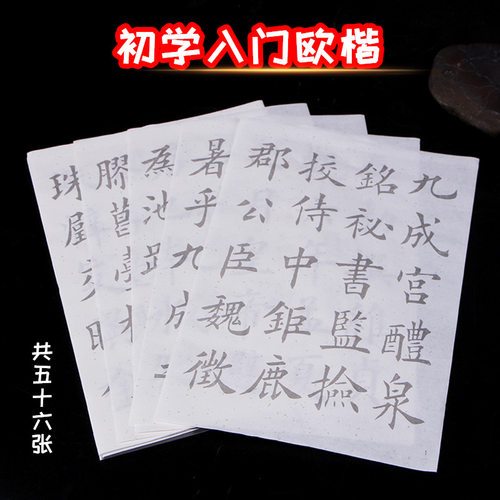 初学入门欧楷
九成宫醴泉
銘祕書監撿
挍侍中鉅鹿
郡公臣魏徵
暑乎九成
為池
膠葛臺
珠壁交
共五十六张